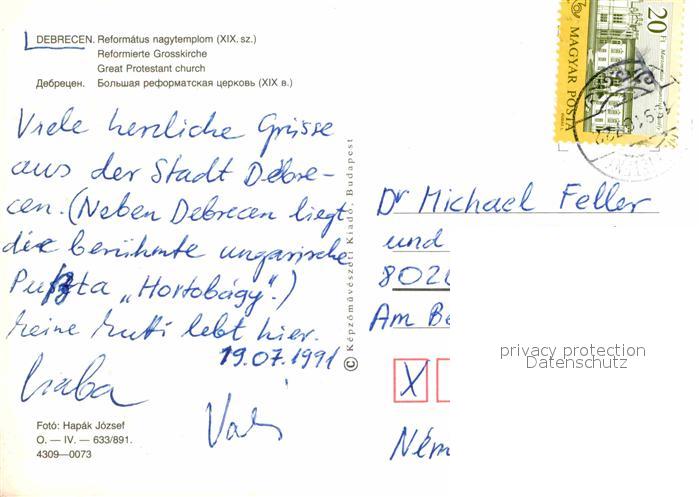 DEBRECEN. Református nagytemplom (XIX. sz.)
Reformierte Grosskirche
Great Protestant church
Дебрецен. Большая реформатская церковь (XIX в.)
Viele herzliche Grüsse
aus der Stadt Debre-
cen. (Neben Debrecen liegt
die berühmte ungarische
Pußta „Hortobágy”.)
Meine Mutti lebt hier.
19.07.1991
Csaba
Fotó: Hapák József
O. — IV. — 633/891.
4309—0073
© Képzőművészeti Kiadó, Budapest
20 Ft
MAGYAR POSTA
Dr Michael Feller
und
802
Am Be
X
Ném
privacy protection
Datenschutz